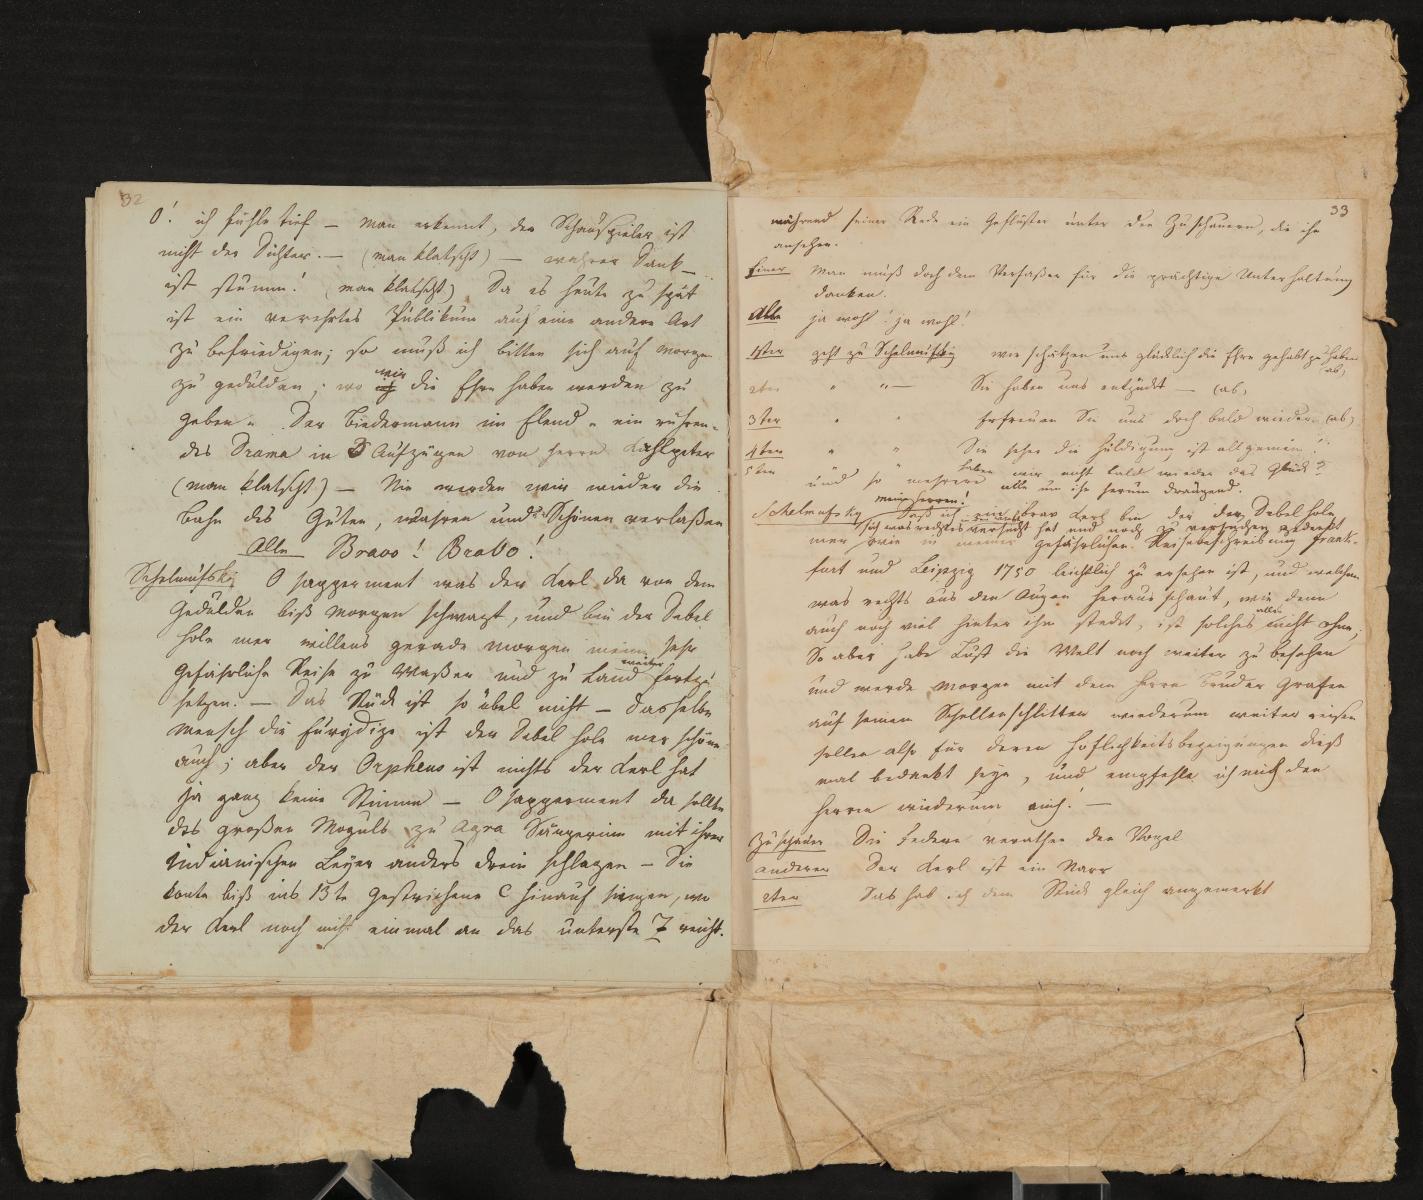 32
O! ich fühle tief — man erkennt, der Schauspieler ist
nicht der Dichter. — (man klatscht) — wahrer Dank —
ist stumm! (man klatscht) Da es heute zu spät
ist ein verehrtes Publikum auf eine andere Art
zu befriedigen; so muß ich bitten sich auf morgen
zu gedulden, wo wir die Ehre haben werden zu
geben „ Der Biedermann im Elend „ ein rühren-
des Drama in 3 Aufzügen von Herrn Kahlpeter
(man klatscht) — Nie werden wir wieder die
Bahn des Guten, Wahren und Schönen verlaßen
Alle Bravo! Bravo!
Schelmufski O sapperment was der Kerl da von dem
Gedulden biß morgen schwazt, und bin der Tebel
hole mer willens gerade morgen meine sehr
gefährliche Reise zu Waßer und zu Land weiter fortzu
setzen. — Das Stück ist so übel nicht — dasselbe
Mensch die Eurydize ist der Tebel hole mer schöne
auch; aber der Orpheus ist nichts der Kerl hat
ja ganz keine Stimme — O sapperment da sollte
des großen Moguls zu Agra Sängerinn mit ihrer
Indianischen Leyer anders drein schlagen — Die
konte biß ins 13te gestrichene C hinauf singen, wo
der Kerl noch nicht einmal an das unterste Z reicht.
33
während seiner Rede ein Geflüster unter den Zuschauern, die ihn
ansehen.
Einer Man muß doch dem Verfaßer für die prächtige Unterhaltung
danken.
Alle ja wohl! ja wohl!
1ster geht zu Schelmufsky wir schätzen uns glücklich die Ehre gehabt zu haben
ab,
2ter „ „ — Sie haben uns entzückt — (ab,
3ter „ „ Erfreuen Sie uns doch bald wieder (ab)
4ter „ „ Sie sehen die Huldigung ist allgemein!
5ter „ haben wir nicht bald wieder das Glück?
und so mehrere alle um ihn herum drängend.
Schelmufsky meine Herren! Daß ich ein brav Kerl bin der der Tebel hole
sich was rechtes versucht hat und noch zu versuchen gedenkt
mer wie in meiner gefährlichen Reisebeschreibung Frank-
furt und Leipzig 1750 leichtlich zu ersehen ist, und welchem
was rechts aus den Augen heraus schaut, wie denn
auch noch viel hinter ihm steckt, ist solches alles nicht ohne;
So aber habe Lust die Welt noch weiter zu besehen
und werde morgen mit dem Herrn Bruder Grafen
auf seinem Schellenschlitten wiederum weiter reisen
sollen also für deren Höflichkeitsbezeigungen dieß
mal bedankt seyn, und empfehle ich mich den
Herren wiederum auch! —
Zuschauer Die Federn verathen den Vogel
anderer Der Kerl ist ein Narr
2ter Das hab ich dem Stück gleich angemerkt